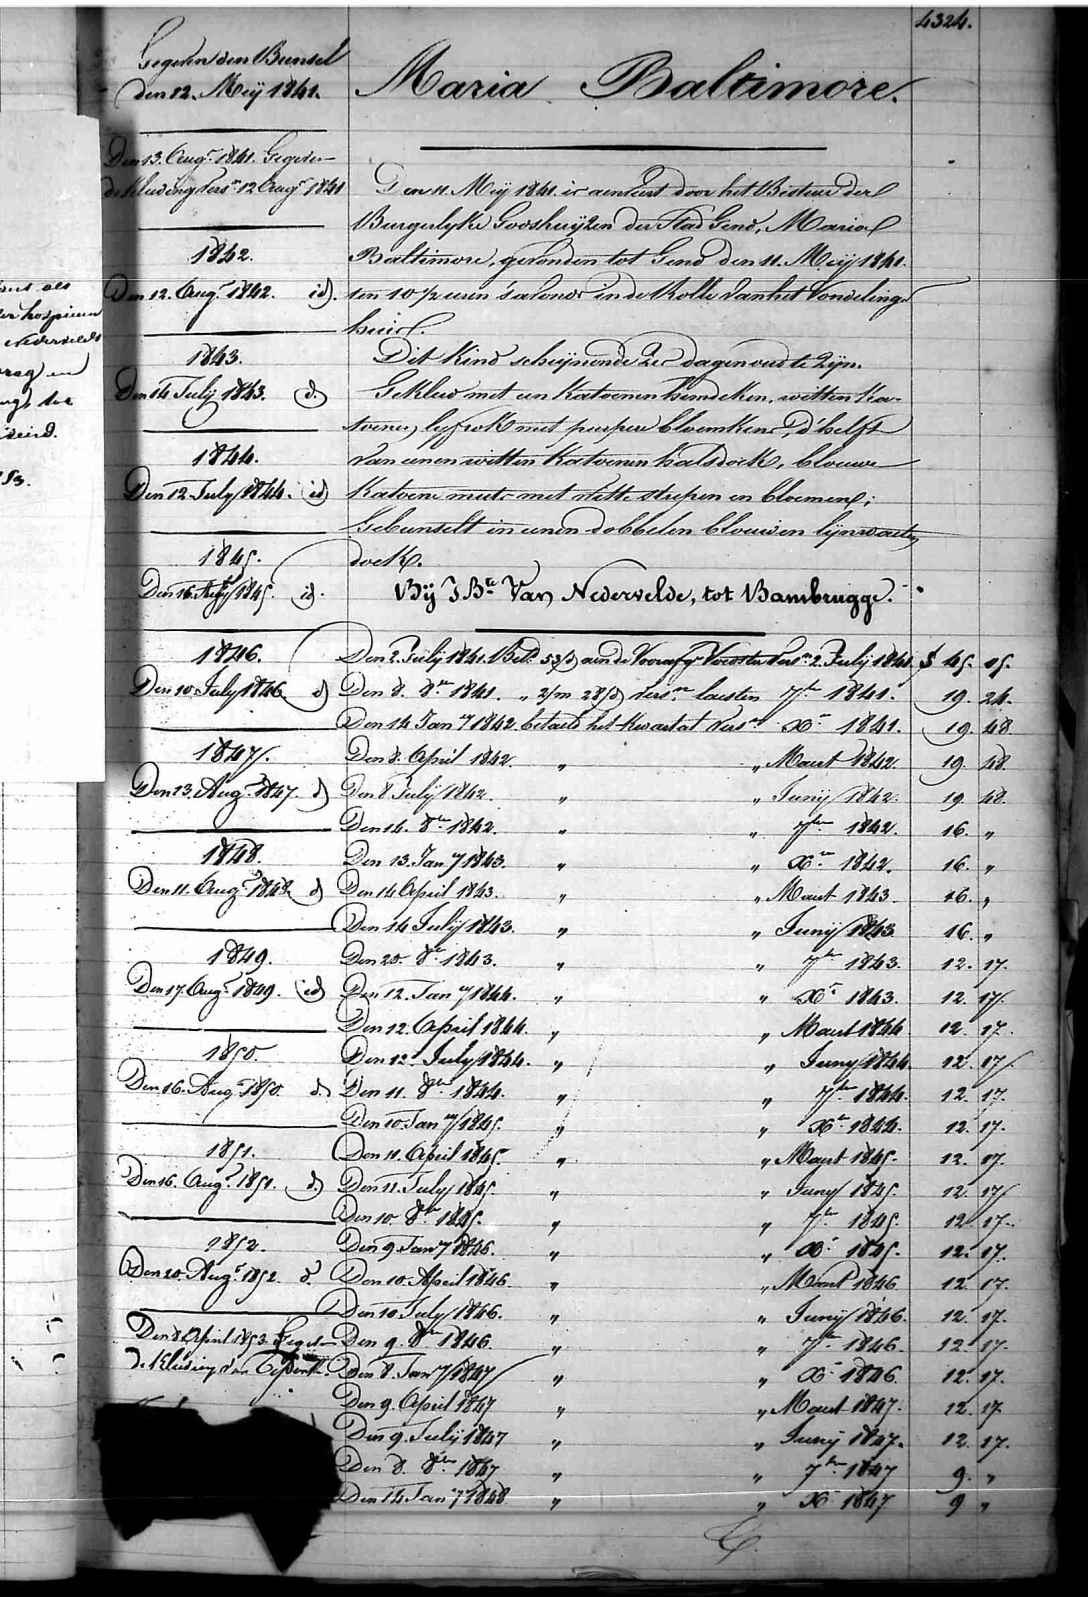 4324.
Gegeven den Bunsel
den 12. Meÿ 1841.
Maria Baltimore.
Den 13. Augt 1841. Gegeven
de kleeding vers. 12 Augt 1841
1842.
Den 12. Augt 1842. id.
1843.
Den 14 Julÿ 1843. id.
1844.
Den 12 July 1844. id
1845.
Den 15. 1845. id.
1846.
Den 10. July 1846 id
1847.
Den 13. Augt 1847. id
1848.
Den 11. Augt 1848 id
1849.
Den 17. Augt 1849. id
1850.
Den 16. Augt 1850. id.
1851.
Den 16. Augt 1851. id.
1852.
Den 20. Augt 1852. id.
Den 8 April 1853. Gegeven
de kleeding van
Den 11. Meÿ 1841. is aenveert door het Bestuer der
Burgerlyke Godshuÿzen der Stad Gend, Maria
Baltimore, gevonden tot Gend den 11. Meÿ 1841.
ten 10 1/2 uren 's avonds in de Rolle van het Vondeling-
huis.
Dit Kind scheÿnende zes dagen oud te zÿn.
Gekleed met een Katoenen hemdeken, witten Ka-
toenen lyfrok met purpere bloemkens, d'helft
van eenen witten Katoenen halsdoek, blouwe
Katoene muts met witte strepen en bloemen;
Gebunselt in eenen dobbelen blouwen lÿnwaeten
doek.
Bÿ J. Bte Van Nedervelde, tot Bambrugge.
Den 2. Julÿ 1841. Bet. 53 aen de Voorafge Vers. 2. Julÿ 1841. 45. 05.
Den 8. 8bre 1841. " 2/m 28 vers. laesten 7bre 1841. 19. 24.
Den 14 Jany 1842 betaeld het Kwartael vers. Xr 1841. 19. 48
Den 8. April 1842. " " Maert 1842 19 48
Den 8 Julÿ 1842. " " Junÿ 1842. 19 48
Den 14. 8bre 1842. " " 7bre 1842. 16. "
Den 13. Jany 1843. " " Xr 1842. 16. "
Den 14 April 1843. " " Maert 1843 16. "
Den 14 Julÿ 1843. " " Junÿ 1843 16. "
Den 20. 8bre 1843. " " 7bre 1843. 12. 17.
Den 12. Jany 1844. " " Xr 1843. 12. 17.
Den 12. April 1844. " " Maert 1844 12. 17.
Den 12. July 1844. " " Juny 1844. 12. 17.
Den 11. 8bre 1844. " " 7bre 1844. 12. 17.
Den 10. Jany 1845. " " Xr 1844. 12. 17.
Den 11. April 1845. " " Maert 1845. 12. 17.
Den 11. July 1845. " " Juny 1845. 12. 17.
Den 10. 8bre 1845. " " 7bre 1845. 12 17.
Den 9 Jany 1846. " " Xr 1845. 12. 17.
Den 10. April 1846 " " Maert 1846 12. 17.
Den 10 July 1846. " " Junÿ 1846. 12. 17.
Den 9. 8bre 1846. " " 7bre 1846. 12 17.
Den 8. Jany 1847 " " Xr 1846 12. 17.
Den 9. April 1847 " " Maert 1847. 12. 17
Den 9. Julÿ 1847 " " Junÿ 1847. 12. 17.
Den 8. 8bre 1847 " " 7bre 1847 9. "
Den 14. Jany 1848 " " Xr 1847 9 "